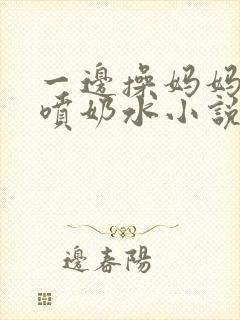 一邊操妈妈
噴奶水小說
邊春陽